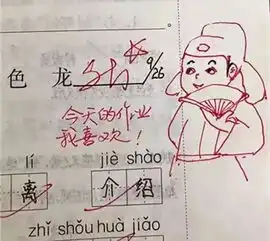 色 龙 9/26
今天的作业
我喜欢！
lí jiè shào
离 介 绍
zhǐ shǒu huà jiǎo